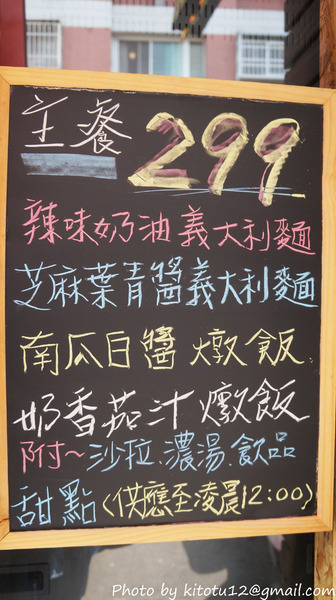 主餐 299
辣味奶油義大利麵
芝麻葉青醬義大利麵
南瓜白醬燉飯
奶香茄汁燉飯
附~沙拉.濃湯.飲品
甜點<供應至凌晨12:00>
Photo by kitotu12@gmail.com